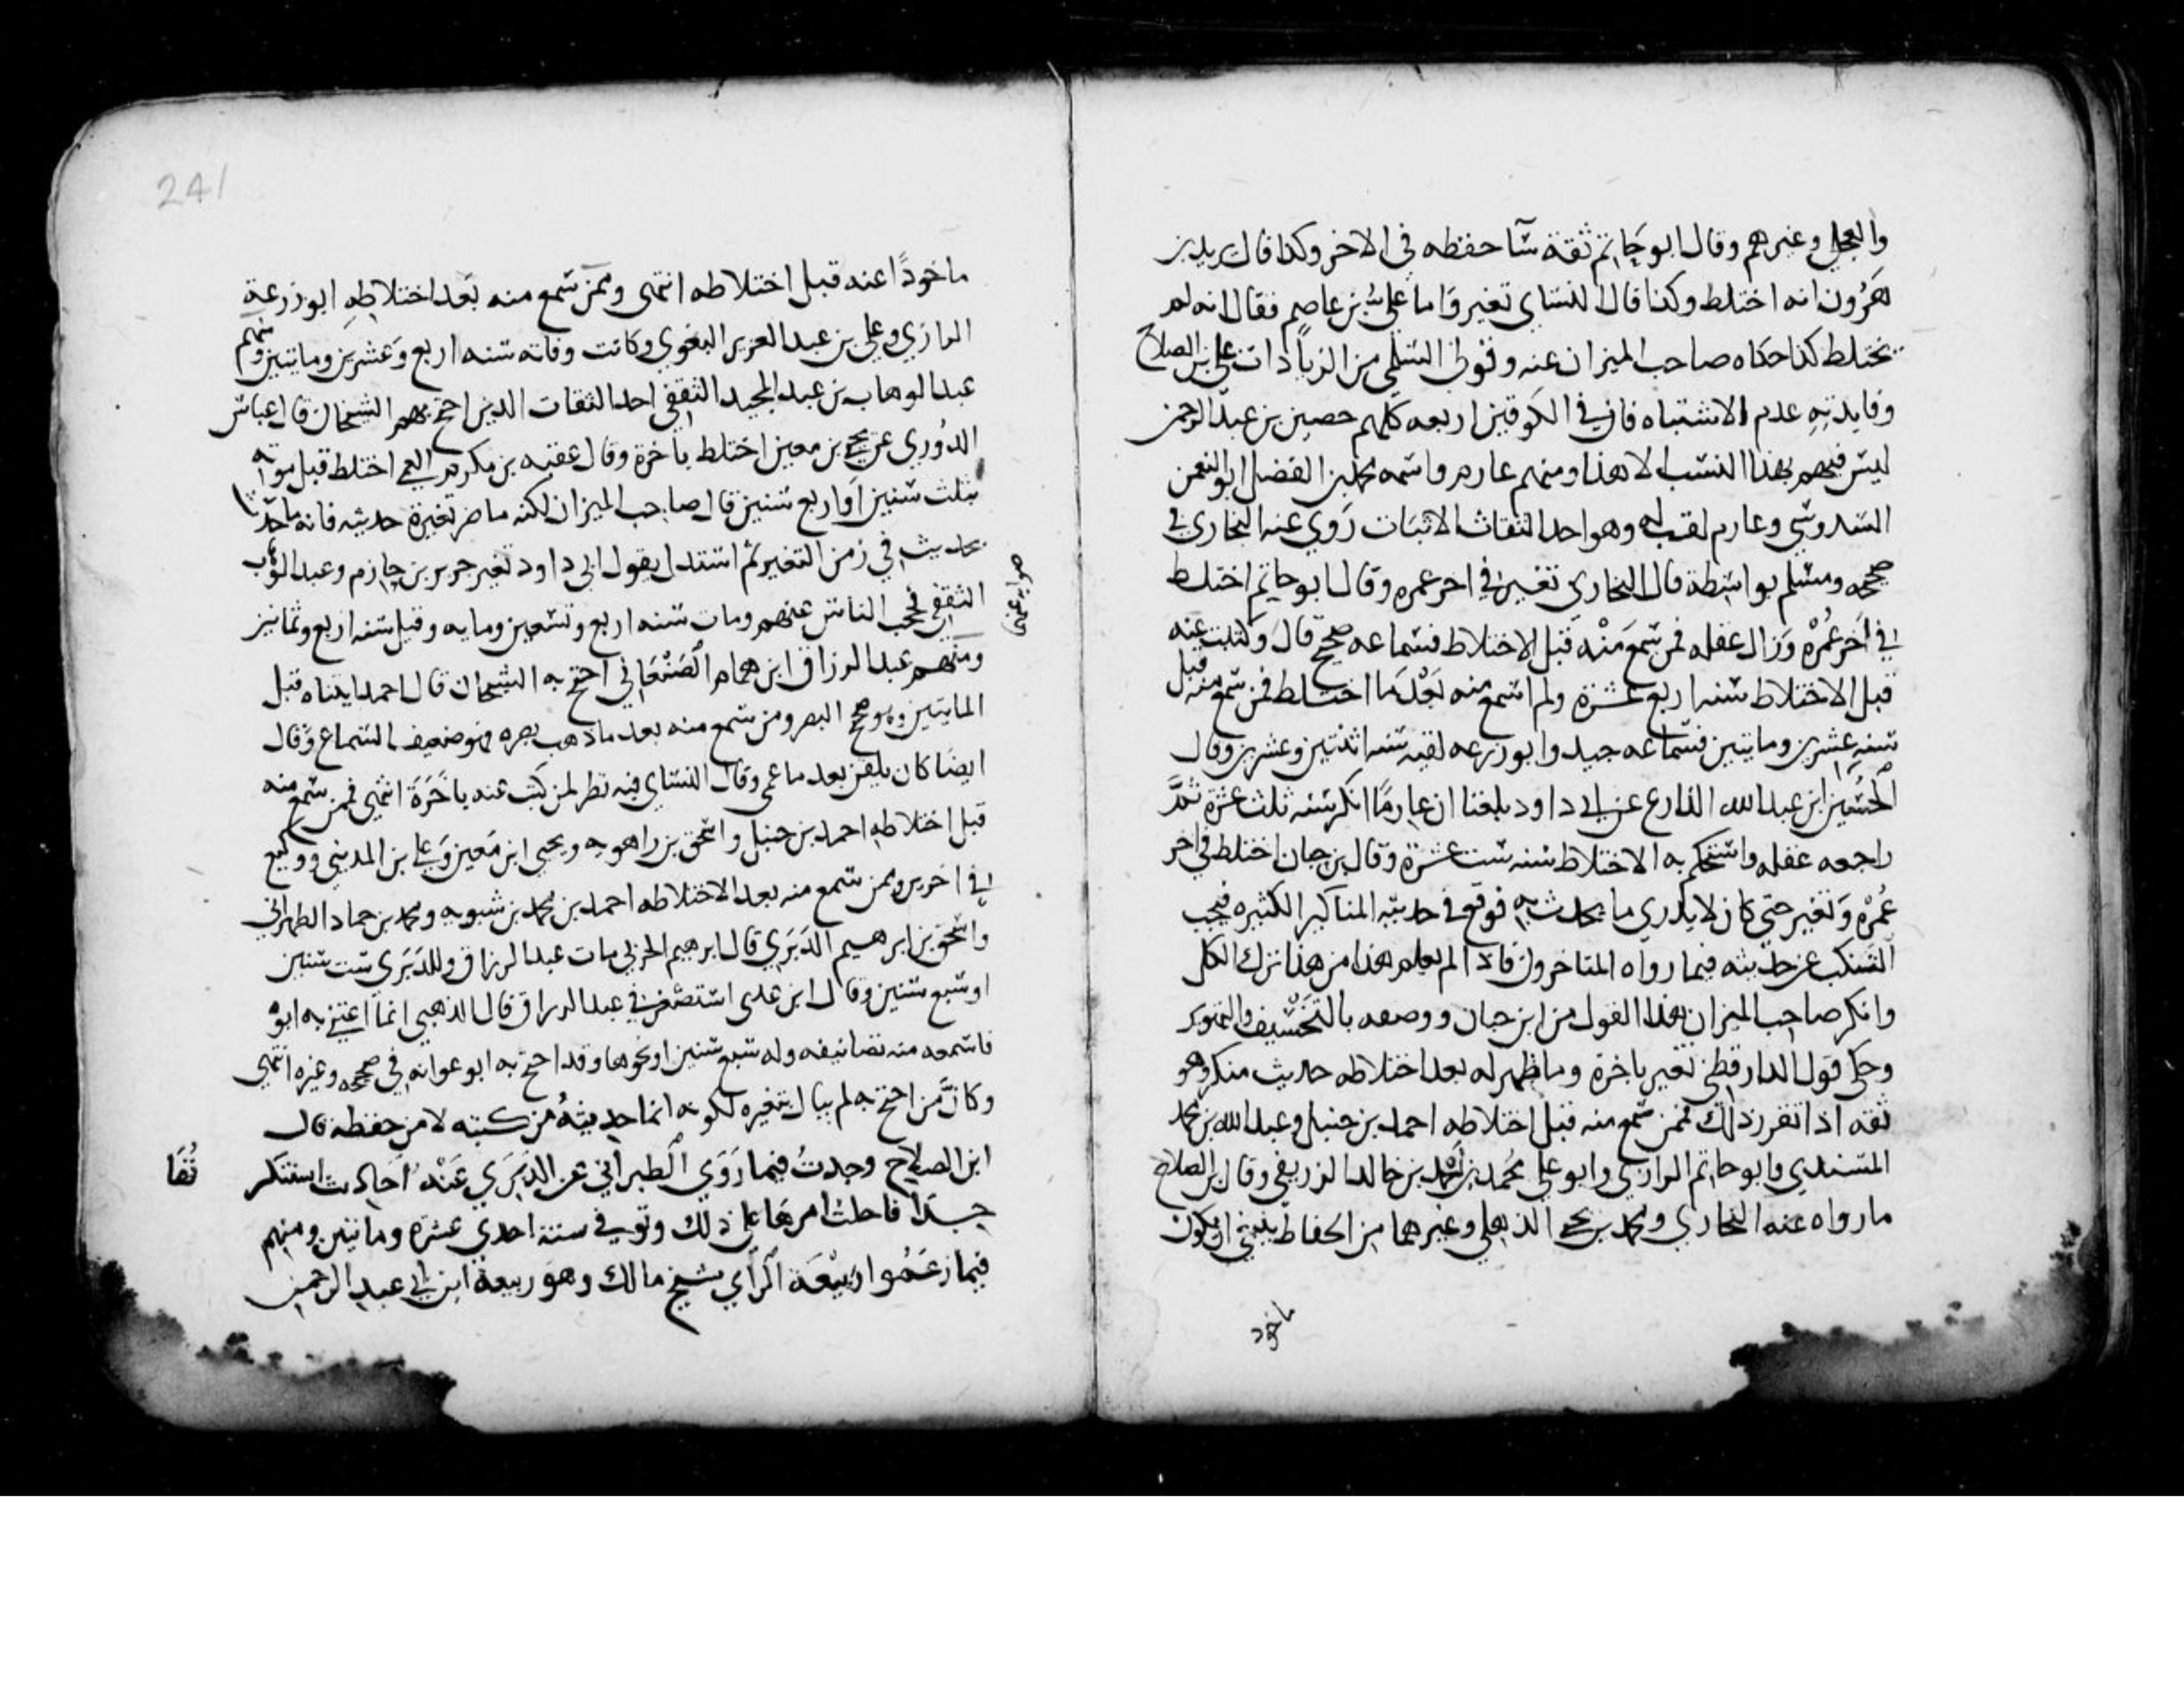 والعجلي وغيرهم وقال ابو حاتم ثقة سآ حفظه في الاخر وكذا قال يزيد بن
هرون انه اختلط وكذا قال النساي تغير واما علي بن عاصم فقال انه لم
يختلط كذا حكاه صاحب الميزان عنه وقولي السلمي من الزيادات على بن الصلاح
وفايدته عدم الاشتباه فان في الكوفين اربعه كلهم حصين بن عبد الرحمن
ليس فيهم بهذا النسب الا هذا ومنهم عارم واسمه محمد بن الفضل ابو النعمن
السدوسي وعارم لقب له وهو احد الثقات الاثبات روي عنه البخاري في
صحيحه ومسلم بواسطة قال البخاري تغير في اخر عمره وقال ابو حاتم اختلط
في اخر عمره وزال عقله فمن سمع منه قبل الاختلاط فسماعه صحيح قال وكتبت عنه
قبل الاختلاط سنه اربع عشرة ولم اسمع منه بعد ما اختلط فمن سمع منه قبل
سنه عشرين وماتين فسماعه جيد وابو زرعه لقيه سنه اثنتين وعشرين وقال
الحسين ابن عبد الله الذارع عن ابي داود بلغنا ان عارما انكر سنه ثلث عشرة ثم
راجعه عقله واستحكم به الاختلاط سنه ست عشرة وقال بن حبان اختلط في اخر
عمره وتغير حتى كان لا يدري ما يحدث به فوقع في حديثه المناكير الكثيره فيجب
التنكب عن حديثه فيما رواه المتاخرون فاذا لم يعلم هذا من هذا ترك الكل
وانكر صاحب الميزان هذا القول من ابن حبان ووصفه بالتخسيف والتهوير
وحكى قول الدارقطني تغير باخرة وما ظهر له بعد اختلاطه حديث منكر وهو
ثقه اذا تقرر ذلك فممن سمع منه قبل اختلاطه احمد بن حنبل وعبد الله بن محمد
المسندي وابو حاتم الرازي وابو علي محمد بن احمد بن خالد الزريقي وقال بن الصلاح
ما رواه عنه البخاري ومحمد بن يحيى الذهلي وغيرهما من الحفاظ ينبغي ان يكون
ماخوذ
241
ماخوذا عنه قبل اختلاطه انتهى وممن سمع منه بعد اختلاطه ابو زرعة
الرازي وعلي بن عبد العزيز البغوي وكانت وفاته سنه اربع وعشرين وماتين ومنهم
عبد الوهاب بن عبد المجيد الثقفي احد الثقات الذين احتج بهم الشيخان قال عباس
الدوري عن يحيى بن معين اختلط باخرة وقال عقبه بن مكرم العمي اختلط قبل موته
بثلث سنين او اربع سنين قال صاحب الميزان لكنه ما ضر تغيره حديثه فانه ما حدث
بحديث في زمن التغير ثم استدل بقول ابي داود تغير جرير بن حازم وعبد الوهاب
الثقفي فحجب الناس عنهم ومات سنه اربع وتسعين ومايه وقيل سنه اربع وثمانين
ومنهم عبد الرزاق ابن همام الصنعاني احتج به الشيخان قال احمد ايتناه قبل
المايتين وهو صحيح البصر ومن سمع منه بعد ما ذهب بصره فهو ضعيف السماع وقال
ايضا كان يلقن بعد ما عمي وقال النساي فيه نظر لمن كتب عنه باخرة انتهى فممن سمع منه
قبل اختلاطه احمد بن حنبل واسحق بن راهويه ويحيى ابن معين وعلي بن المديني ووكيع
في اخرين وممن سمع منه بعد الاختلاطه احمد بن محمد بن شبويه ومحمد بن حماد الطهراني
واسحق بن ابرهيم الدبري قال ابرهيم الحربي مات عبد الرزاق وللدبري ست سنين
او سبع سنين وقال ابن عدي استصغر في عبد الرزاق قال الذهبي انما اعتنى به ابوه
فاسمعه منه تصانيفه وله سبع سنين او نحوها وقد احتج به ابو عوانه في صحيحه وغيره انتهى
وكان من احتج به لم يبال بتغيره لكونه انما حديثه من كتبه لا من حفظه قال
ابن الصلاح وجدت فيما روي الطبراني عن الدبري عنه احاديث استنكر
جدا فاحلت امرها على ذلك وتوفي سنة احدي عشرة وماتين ومنهم
فيما زعموا ربيعة الراي شيخ مالك وهو ربيعة ابن ابي عبد الرحمن